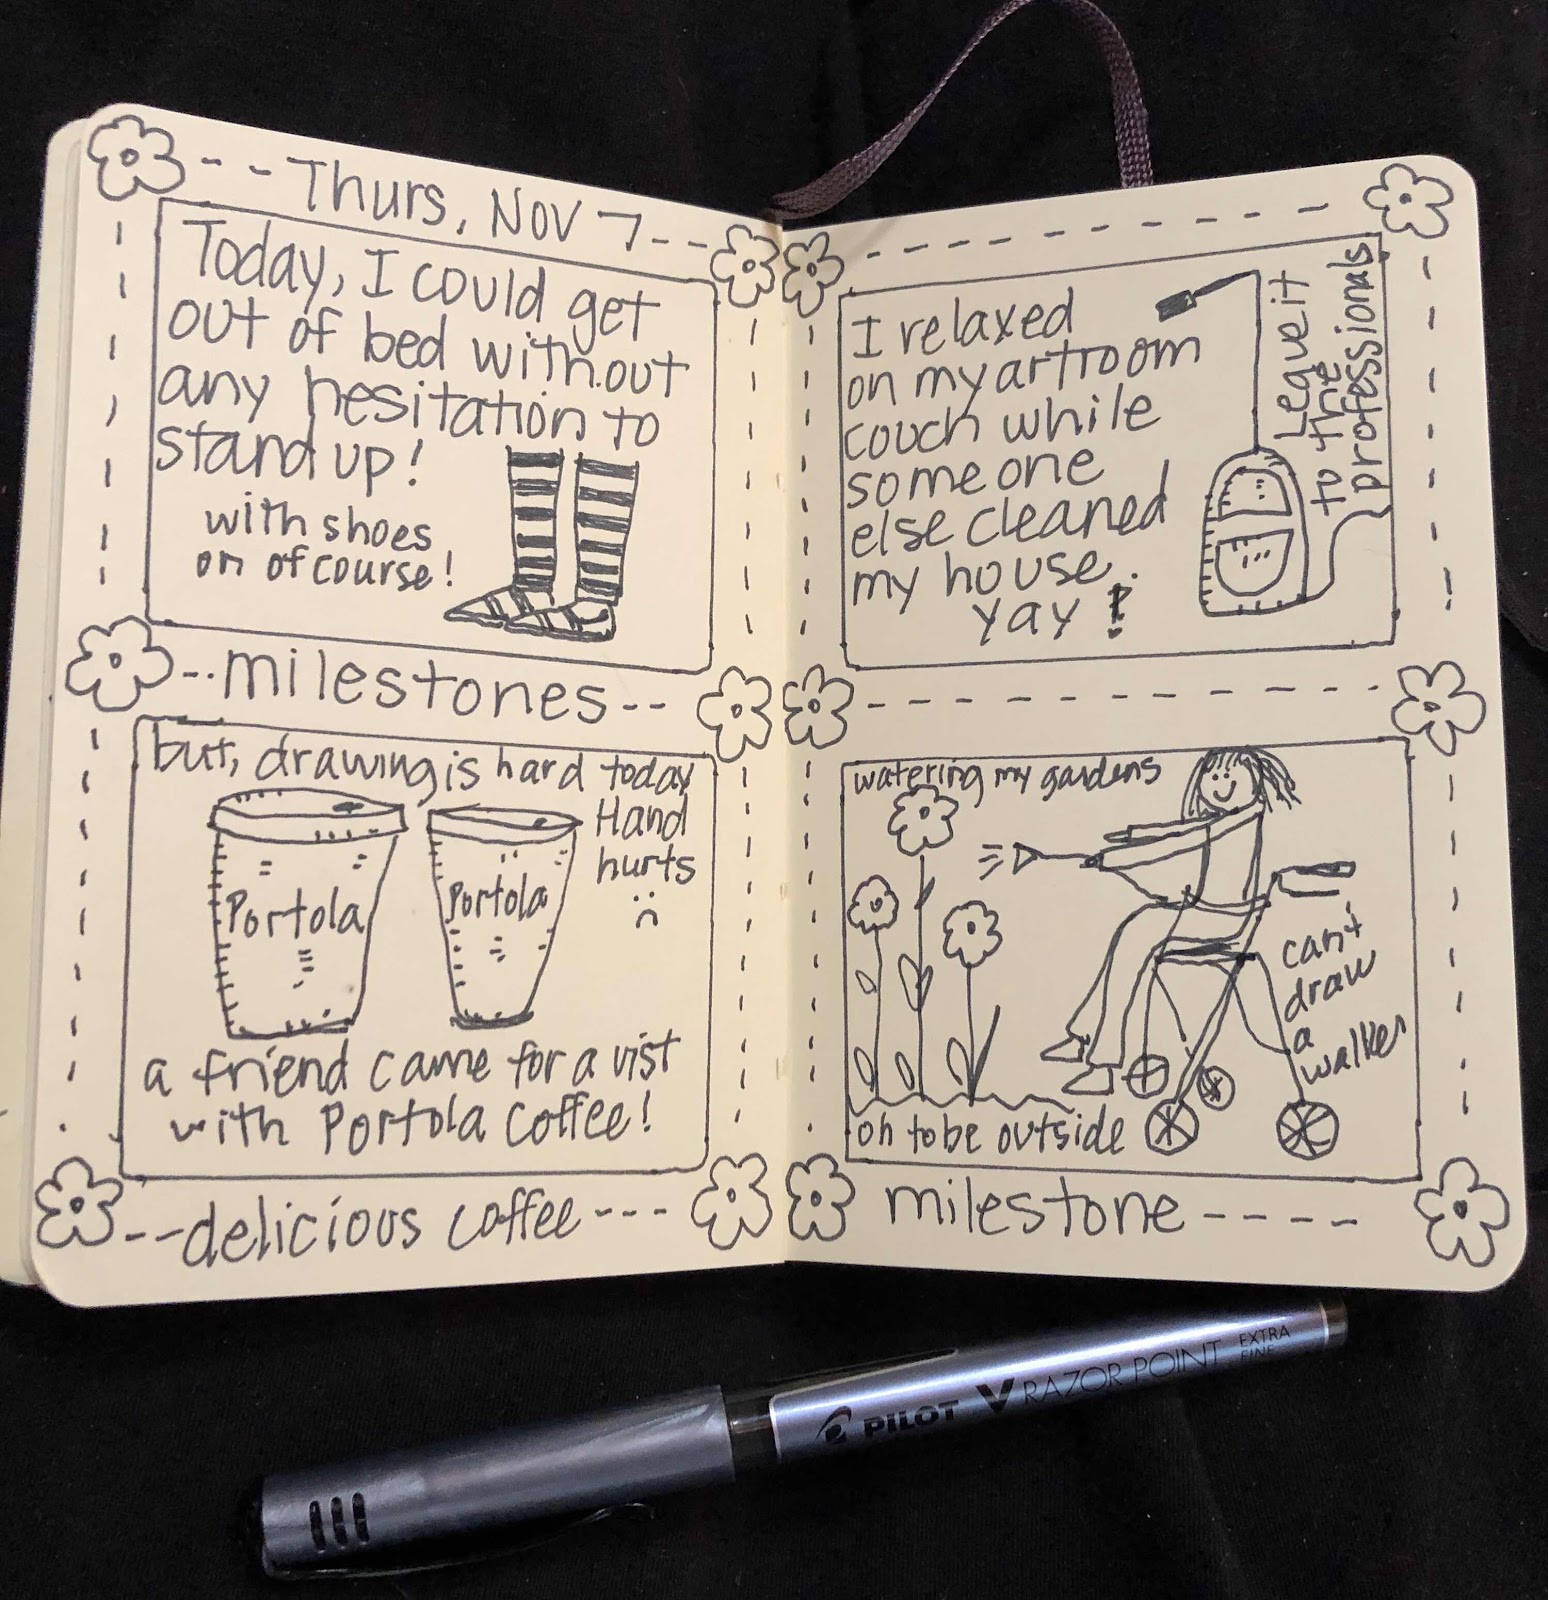 Thurs, Nov 7
Today, I could get
out of bed without
any hesitation to
stand up!
with shoes
on of course!
milestones
but, drawing is hard today
Hand
hurts
Portola
Portola
a friend came for a vist
with Portola Coffee!
delicious coffee
I relaxed
on my artroom
couch while
someone
else cleaned
my house.
yay!
Leave it
to the
professionals
watering my gardens
can't
draw
a
walker
oh to be outside
milestone
PILOT V RAZOR POINT EXTRA
FINE